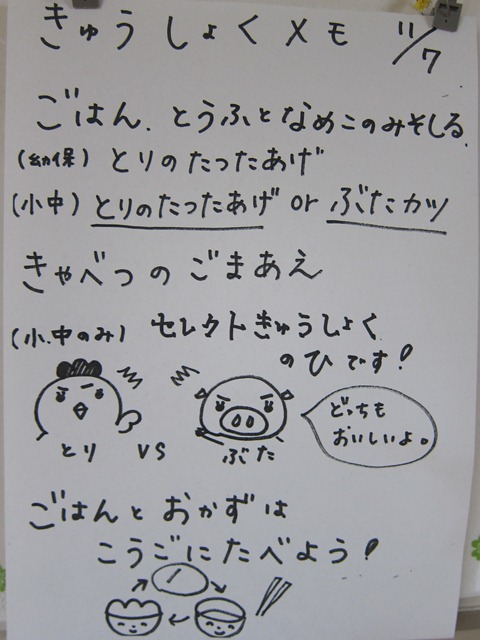 きゅうしょくメモ 11/7
ごはん、とうふとなめこのみそしる、
(幼保) とりのたったあげ
(小中) とりのたったあげ or ぶたカツ
きゃべつのごまあえ
(小、中のみ) セレクトきゅうしょく
のひです!
とり VS ぶた
どっちも
おいしいよ。
ごはんとおかずは
こうごにたべよう!